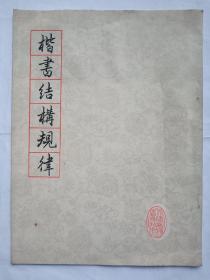 楷書结構規律